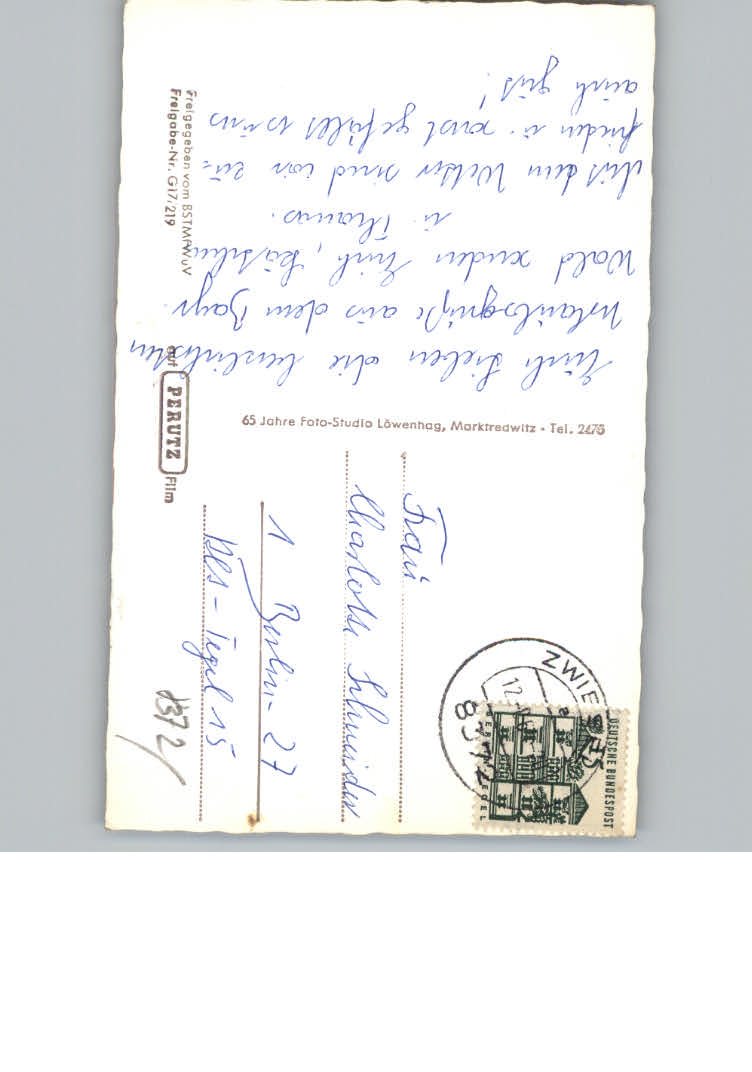 Euch Lieben die herzlichsten
Urlaubsgrüße aus dem Bayr.
Wald senden Erich,
u. Thomas.
Mit dem Wetter sind wir zu-
frieden u. sonst gefällt es uns
auch gut!
Freigegeben vom BSTMFWuV
Freigabe-Nr. G17/219
auf PERUTZ Film
65 Jahre Foto-Studio Löwenhag, Marktredwitz - Tel. 2475
Frau
Charlotte Schneider
1 Berlin-27
Bln-Tegel 15
8372
ZWIESEL
12.
8372
DEUTSCHE BUNDESPOST
15
BERLIN TEGEL